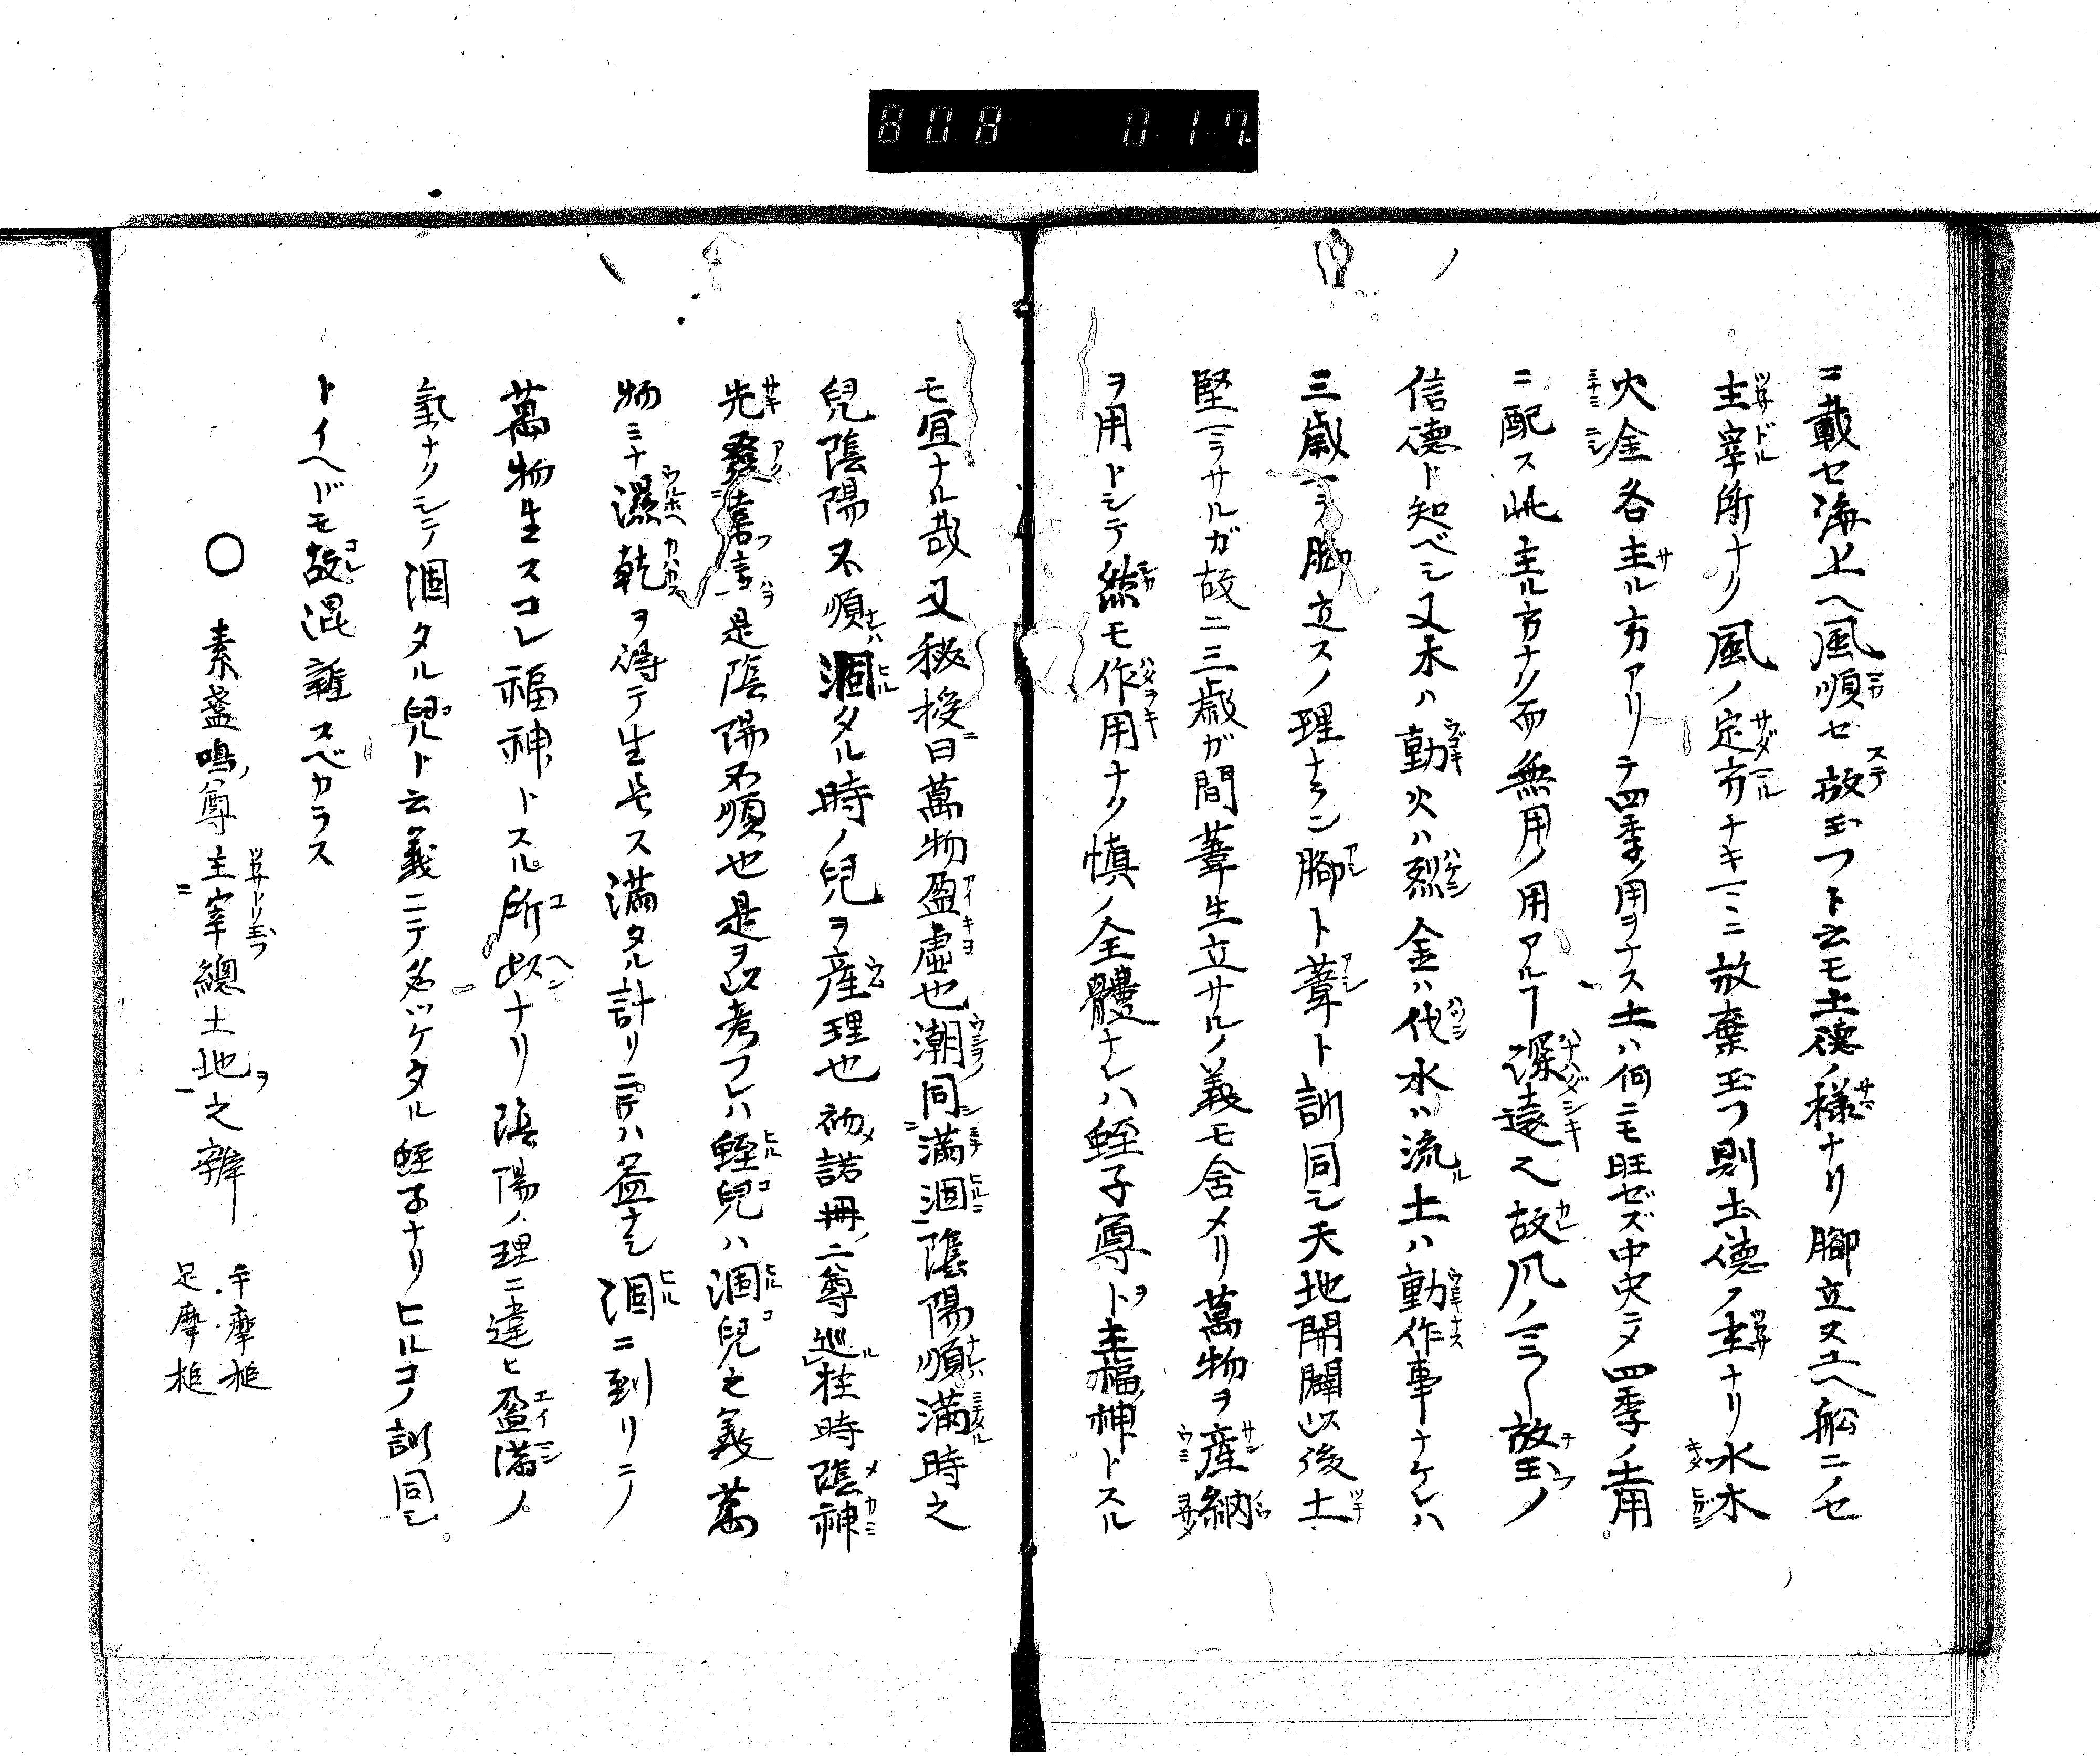 808 017
ニ載セ海上ヘ風順セ放玉フト云モ土徳ノ様ナリ脚立ヌユヘ船ニノセ
主宰所ナリ風ノ定方ナキ一ミニ放棄玉フ則土徳ノ主ナリ水木
火金各主ル方アリテ四季ノ用ヲナス土ハ何ニモ旺ゼズ中央ニメ四季ノ土用
ニ配ス此主ル方ナク而無用ノ用アルヿ深遠之故風ノ放玉フノ
信徳ト知ベシ又木ハ動火ハ烈金ハ伐水ハ流土ハ動作事ナケレハ
三歳脚立スノ理ナラン脚ト葦ト訓同シ天地開闢以後土
堅サルガ故ニ三歳ガ間葦生立サルノ義モ舍メリ萬物ヲ産納
ヲ用トシテ然モ作用ナク慎ノ全體ナレハ蛭子尊ト主福神トスル
モ宜ナル哉又秘授曰萬物盈虚也潮同満涸陰陽順満時之
兒陰陽不順涸タル時ノ兒ヲ産理也初諾冊二尊巡柱時陰神
先發喜言是陰陽不順也是ヲ以考フレハ蛭兒ハ涸兒之義萬
物ミナ濕乾ヲ得テ生長ス満タル計リニテハ益ナシ涸ニ到リテ
萬物生スコレ福神トスル所以ナリ陰陽ノ理ニ違ヒ盈満ノ
氣ナクシテ涸タル兒ト云義ニテ名ツケタル蛭子ナリヒルコノ訓同シ
トイヘドモ故混雜スベカラス
○ 素盞嗚尊主宰總土地之辨 手摩槌 足摩槌